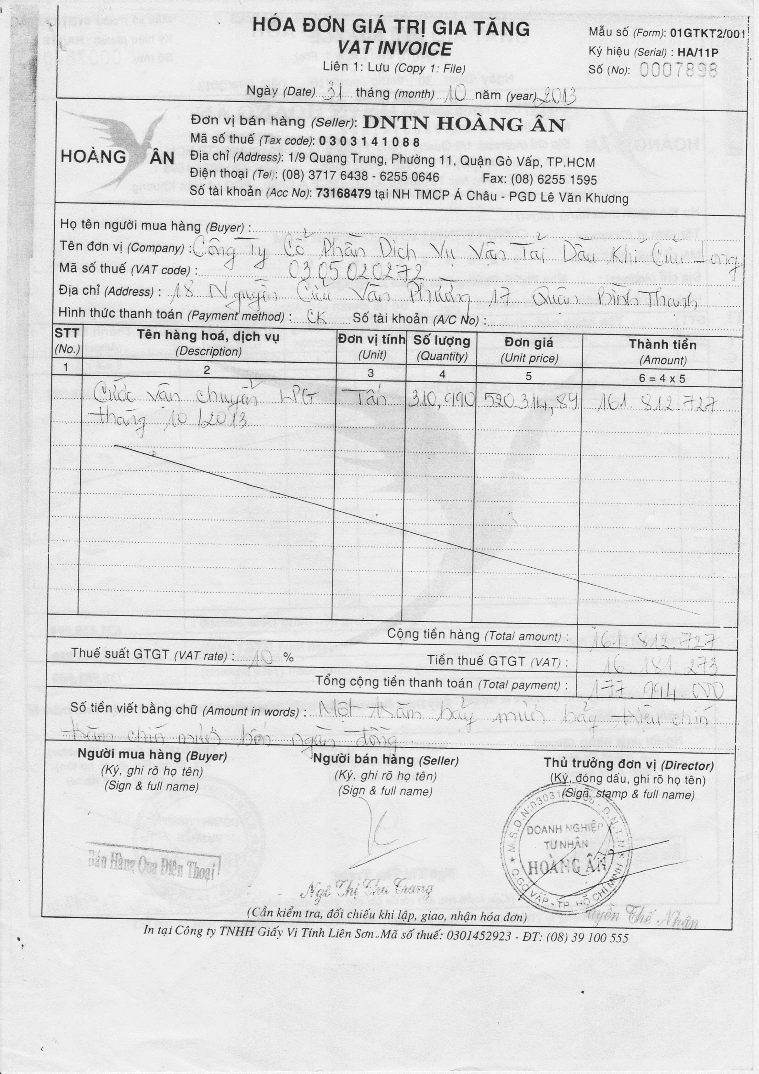 HÓA ĐƠN GIÁ TRỊ GIA TĂNG
VAT INVOICE
Liên 1: Lưu (Copy 1: File)
Mẫu số (Form): 01GTKT2/001
Ký hiệu (Serial) : HA/11P
Số (No): 0007898
Ngày (Date) 31 tháng (month) 10 năm (year) 2013
HOÀNG ÂN
Đơn vị bán hàng (Seller): DNTN HOÀNG ÂN
Mã số thuế (Tax code): 0 3 0 3 1 4 1 0 8 8
Địa chỉ (Address): 1/9 Quang Trung, Phường 11, Quận Gò Vấp, TP.HCM
Điện thoại (Tel): (08) 3717 6438 - 6255 0646 Fax: (08) 6255 1595
Số tài khoản (Acc No): 73168479 tại NH TMCP Á Châu - PGD Lê Văn Khương
Họ tên người mua hàng (Buyer) :
Tên đơn vị (Company) : Công Ty Cổ Phần Dịch Vụ Vận Tải Dầu Khí Cửu Long
Mã số thuế (VAT code) : 0305020272
Địa chỉ (Address) : 18 Nguyễn Cửu Vân Phường 17 Quận Bình Thạnh
Hình thức thanh toán (Payment method) : CK Số tài khoản (A/C No) :
STT (No.) Tên hàng hoá, dịch vụ (Description) Đơn vị tính (Unit) Số lượng (Quantity) Đơn giá (Unit price) Thành tiền (Amount)
1 2 3 4 5 6 = 4 x 5
Cước vận chuyển LPG Tấn 310,990 520.314,89 161.812.727
tháng 10/2013
Cộng tiền hàng (Total amount) : 161.812.727
Thuế suất GTGT (VAT rate) : 10 % Tiền thuế GTGT (VAT) : 16.181.273
Tổng cộng tiền thanh toán (Total payment) : 177.994.000
Số tiền viết bằng chữ (Amount in words) : Một trăm bảy mươi bảy triệu chín
trăm chín mươi bốn ngàn đồng
Người mua hàng (Buyer) Người bán hàng (Seller) Thủ trưởng đơn vị (Director)
(Ký, ghi rõ họ tên) (Ký, ghi rõ họ tên) (Ký, đóng dấu, ghi rõ họ tên)
(Sign & full name) (Sign & full name) (Sign, stamp & full name)
DOANH NGHIỆP
TƯ NHÂN
HOÀNG ÂN
Q.GÒ VẤP - TP. HỒ CHÍ MINH
Bán Hàng Qua Điện Thoại
Ngô Thị Thu Trang
Thế Nhân
(Cần kiểm tra, đối chiếu khi lập, giao, nhận hóa đơn)
In tại Công ty TNHH Giấy Vi Tính Liên Sơn..Mã số thuế: 0301452923 - ĐT: (08) 39 100 555